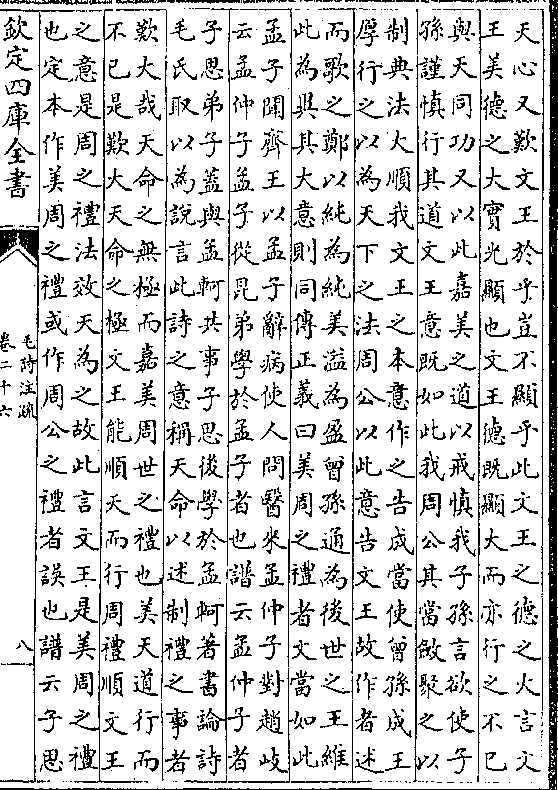 天心又歎文王於乎豈不顯乎此文王之德之大言文
王美德之大實光顯也文王德既顯大而亦行之不已
與天同功又以此嘉美之道以戒慎我子孫言欲使子
孫謹慎行其道文王意既如此我周公其當斂聚之以
制典法大順我文王之本意作之告成當使曾孫成王
厚行之以為天下之法周公以此意告文王故作者述
而歌之鄭以純為純美溢為盈曾孫通為後世之王維
此為異其大意則同傳正義曰美周之禮者文當如此
孟子聞齊王以孟子辭病使人問醫來孟仲子對趙岐
云孟仲子孟子從昆弟學於孟子者也譜云孟仲子者
子思弟子蓋與孟軻共事子思後學於孟軻著書論詩
毛氏取以為說言此詩之意稱天命以述制禮之事者
歎大哉天命之無極而嘉美周世之禮也美天道行而
不已是歎大天命之極文王能順天而行周禮順文王
之意是周之禮法效天為之故此言文王是美周之禮
也定本作美周之禮或作周公之禮者誤也譜云子思
欽定四庫全書
毛詩注疏
卷二十六
八